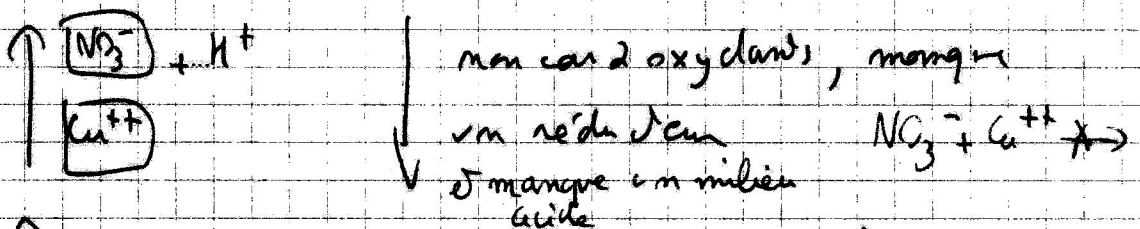 NO₃⁻ + H⁺ non car 2 oxydants, manque
Cu⁺⁺ un réducteur NO₃⁻ + Cu⁺⁺ ↛
et manque un milieu
acide